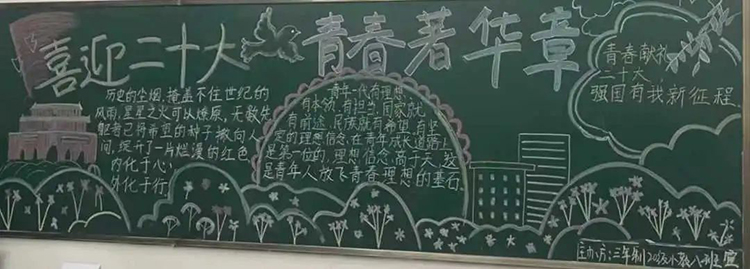 喜迎二十大
青春著华章
历史的尘烟,掩盖不住世纪的
风雨,星星之火可以燎原。无数先
驱者已将希望的种子撒向人
间,绽开了一片烂漫的红色
内化于心,
外化于行
青年一代有理想、
有本领、有担当,国家就
有前途,民族就有希望,有坚
定的理想信念,在青年成长道路上
是第一位的,理想信念高于天,这
是青年人放飞青春理想的基石。
青春献礼
二十大,
强国有我新征程
主办方:三年制20级小教八班宣